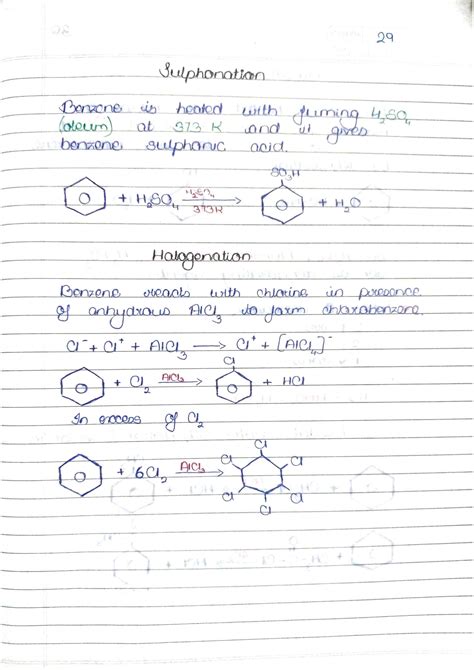 29
Sulphonation
Benzene is heated with fuming H₂SO₄
(oleum) at 373 K and it gives
benzene sulphonic acid.
SO₃H
+ H₂SO₄ H₂SO₄ → 373K + H₂O
Halogenation
Benzene reacts with chlorine in presence
of anhydrous AlCl₃ to form chlorobenzene.
Cl⁻ + Cl⁺ + AlCl₃ → Cl⁺ + [AlCl₄]⁻
Cl
+ Cl₂ AlCl₃ → + HCl
In excess of Cl₂
+ 6Cl₂ AlCl₃ → Cl Cl Cl Cl Cl Cl